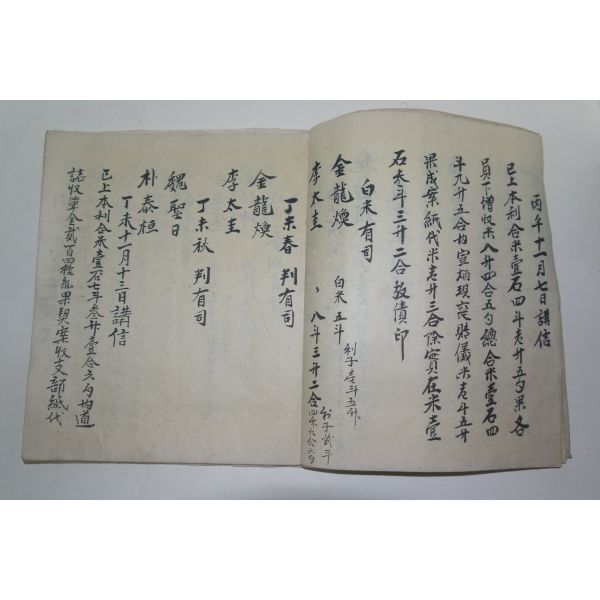 丙午十一月七日講信
已上本利合米壹石四斗壱升五勺果各
員下增收米八升四合五勺總合米壹石四
斗九升五合內宣炳琪賻儀米壱斗五升
果成案紙代米壱升三合除實在米壹
石叁斗三升二合敎債印
白米有司
金龍煥 白米五斗 利子壱斗五升
李太圭 〃 八斗三升二合 利子貳斗四升九合六勺
丁未春判有司
金龍煥
李太圭
丁未秋判有司
魏聖日
朴泰桓
丁未十一月十三日講信
已上本利合米壹石七斗叁升壹合六勺內道
誌收單金貳百四拾 果契案收支部紙代